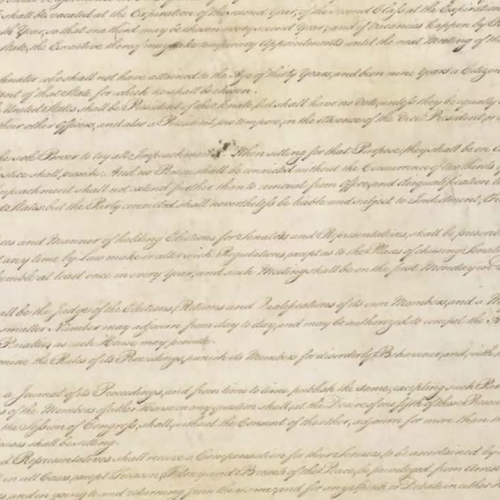 shall be vacated at the Expiration of the second Year, of the second Class at the Expiration
th Year, so that one third may be chosen every second Year; and if Vacancies happen by
State, the Executive thereof may make temporary Appointments until the next Meeting of the
Senator who shall not have attained to the Age of thirty Years, and been nine Years a Citizen
ant of that State for which he shall be chosen.
United States shall be President of the Senate, but shall have no Vote, unless they be equally
their other Officers, and also a President pro tempore, in the Absence of the Vice President, or
the sole Power to try all Impeachments. When sitting for that Purpose, they shall be on
Justice shall preside: And no Person shall be convicted without the Concurrence of two thirds of
Impeachment shall not extend further than to removal from Office, and disqualification
States: but the Party convicted shall nevertheless be liable and subject to Indictment,
ces and Manner of holding Elections for Senators and Representatives, shall be prescri
any time by Law make or alter such Regulations, except as to the Places of chusing Sena
emble at least once in every Year, and such Meeting shall be on the first Monday in
all be the Judge of the Elections, Returns and Qualifications of its own Members, and
smaller Number may adjourn from day to day, and may be authorized to compel the
Penalties as each House may provide.
rmine the Rules of its Proceedings, punish its Members for disorderly Behaviour, and, with
a Journal of its Proceedings, and from time to time publish the same, excepting such Par
s of the Members of either House on any question shall, at the Desire of one fifth of those Presen
the Session of Congress, shall, without the Consent of the other, adjourn for more than
ouses shall be sitting.
d Representatives shall receive a Compensation for their Services, to be ascertained by
in all Cases, except Treason, Felony and Breach of the Peace, be privileged from
and in going to and returning from the same; and for any Speech or Debate in either